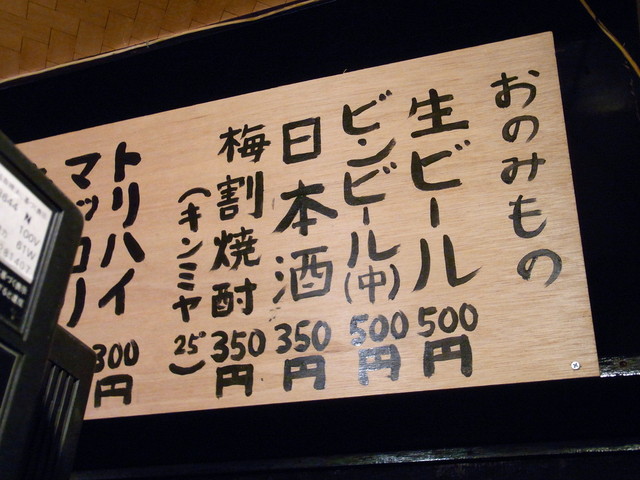 おのみもの
生ビール 500円
ビンビール(中) 500円
日本酒 350円
梅割焼酎 350円
(キンミヤ25°)
トリハイ 300円
マッコリ
N 100V
61W